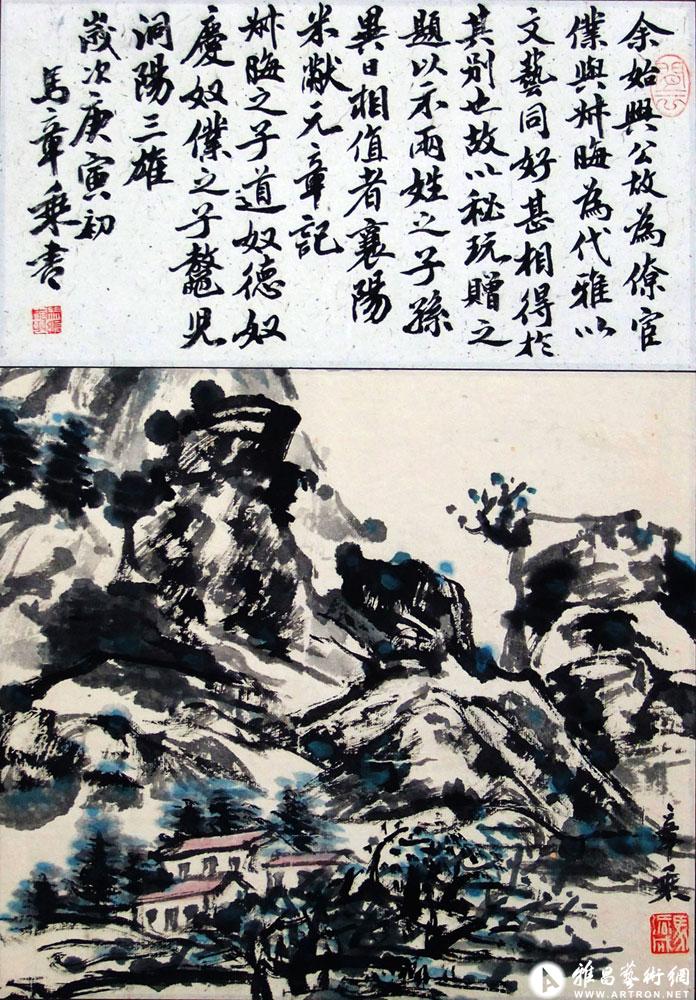 余始興公故為僚宦
僕與叔晦為代雅以
文藝同好甚相得於
其別也故以秘玩贈之
題以示兩姓之子孫
異日相值者襄陽
米黻元章記
叔晦之子道奴德奴
慶奴僕之子鼇兒
洞陽三雄
歲次庚寅初
馬章乘書
章乘
雅昌藝術網
WWW.ARTRON.NET